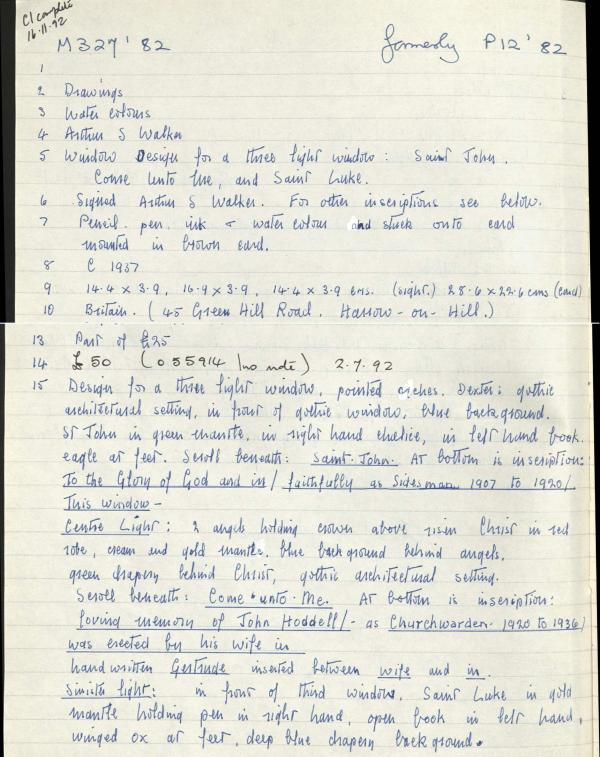 C1 complete
16.11.92
M327'82 formerly P12'82
1
2 Drawings
3 Water colours
4 Arthur S Walker
5 Window Design for a three light window: Saint John.
Come unto Me, and Saint Luke.
6 Signed Arthur S Walker. For other inscriptions see below.
7 Pencil. pen. ink & water colour and stuck onto card
mounted in brown card.
8 C 1937
9 14.4 x 3.9, 16.9 x 3.9, 14.4 x 3.9 cms. (sight.) 28.6 x 22.6 cms (card)
10 Britain. (45 Green Hill Road. Harrow-on-Hill.)
13 Part of £25
14 £50 (055914/no note) 2.7.92
15 Design for a three light window, pointed arches. Dexter: gothic
architectural setting, in front of gothic window, blue background.
St John in green mantle, in right hand chalice, in left hand book.
eagle at feet. Scroll beneath: Saint. John. At bottom is inscription:
To the Glory of God and in/ faithfully as Sidesman 1907 to 1920/
This window -
Centre Light: 2 angels holding crown above risen Christ in red
robe, cream and gold mantle. blue background behind angels.
green drapery behind Christ, gothic architectural setting.
Scroll beneath: Come.unto.Me. At bottom is inscription:
loving memory of John Hoddell/- as Churchwarden- 1920 to 1936/
was erected by his wife in
handwritten Gertrude inserted between wife and in.
Sinister light: in front of third window. Saint Luke in gold
mantle holding pen in right hand, open book in left hand,
winged ox at feet, deep blue drapery background.